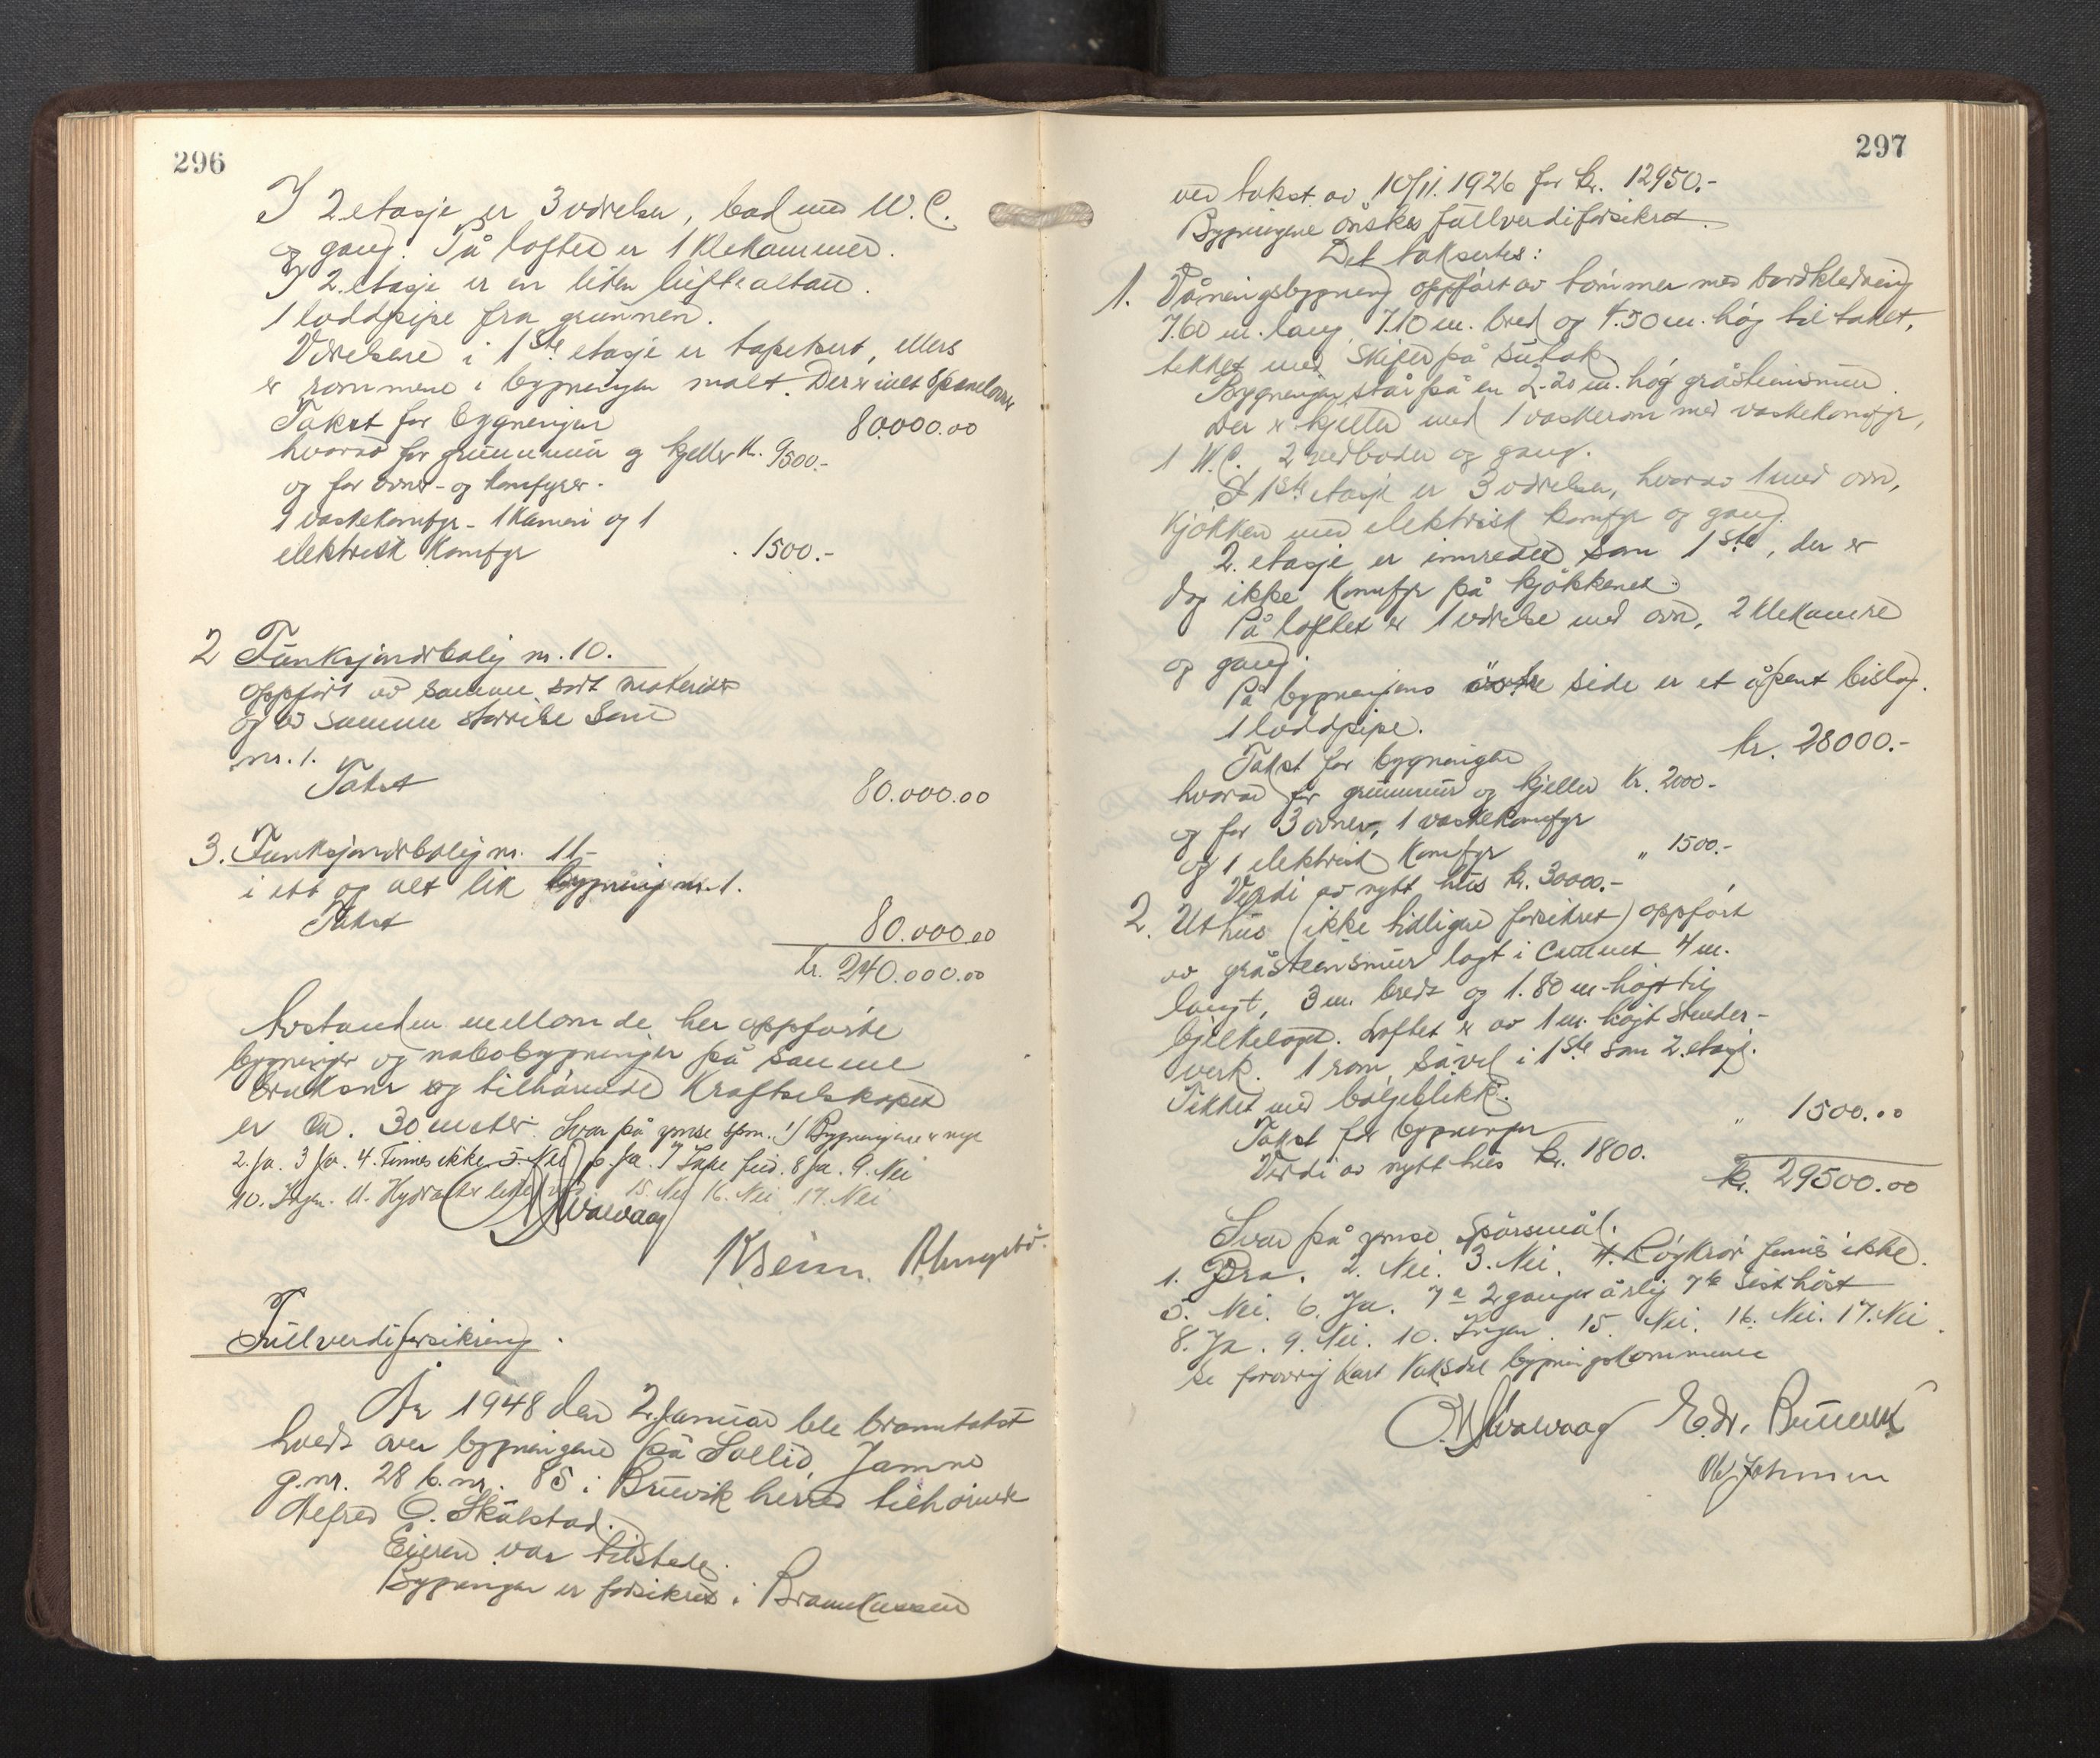 296
I 2 etasje er 3 værelser, bad med W.C.
og gang. På loftet er 1 klekammer.
I 2. etasje er en liten luftealtan.
1 loddpipe fra grunnen.
Værelsene i 1ste etasje er tapetsert, ellers
er rommene i bygningen malt. Der er intet
Takst for bygningen 80.000.00
hvorav for grunnmur og kjeller kr. 9500.-
og for ovner- og komfyrer.
1 vaskekomfyr - 1 kamin og 1
elektrisk komfyr . 1500.-
2 Funksjonærbolig nr. 10.
oppført av samme sort materialer
og av samme størrelse som
nr. 1.
Takst 80.000.00
3. Funksjonærbolig nr. 11-
i ett og alt lik bygning nr. 1.
Takst 80.000.00
kr. 240.000.00
Avstanden mellom de her oppførte
bygninger og nabobygninger på samme
bruksnr og tilhørende Kraftselskapet
er ca. 30 meter. Svar på ymse spm. 1) Bygningene er nye
2. Ja. 3 Ja. 4. Finnes ikke 5. Nei 6. Ja. 7 Ikke feid. 8 Ja. 9. Nei
10. Ingen. 11. Hydranter like ved. 15. Nei 16. Nei 17. Nei
Fullverdiforsikring.
År 1948 den 2. januar ble branntakst
holdt over bygningene på Sollid, Jamne
g.nr. 28 b.nr. 85 i Bruvik herred tilhørende
Alfred O. Skulstad.
Eieren var tilstede.
Bygningen er forsikret i Brannkassen
297
ved takst av 10/11. 1926 for kr. 12950.-
Bygningene ønskes fullverdiforsikret.
Det taksertes:
1. Våningsbygning oppført av tømmer med bordkledning
7.60 m. lang, 7.10 m. bred og 4.50 m. høg til taket,
tekket med skifer på sutak
Bygningen står på en 2.20 m. høg gråsteinsmur.
Der er kjeller med 1 vaskerom med vaskekomfyr,
1 W.C. 2 vedboder og gang.
I 1ste etasje er 3 værelser, hvorav 1 med ovn,
kjøkken med elektrisk komfyr og gang.
2. etasje er innredet som 1ste, der er
dog ikke komfyr på kjøkkenet.
På loftet er 1 værelse med ovn, 2 klekamre
og gang.
På bygningens østre side er et åpent bislag.
1 loddpipe.
Takst for bygningen kr. 28000.-
hvorav for grunnmur og kjeller kr. 2000.-
og for 3 ovner, 1 vaskekomfyr
og 1 elektrisk komfyr " 1500.-
Verdi av nytt hus kr. 30000.-
2. Uthus (ikke tidligere forsikret) oppført
av gråsteinsmur lagt i cement 4 m.
langt, 3 m. bredt og 1.80 m. høgt til
bjelkelaget. Loftet er av 1 m. høgt stender-
verk. 1 rom såvel i 1ste som 2. etasje.
Tekket med bølgeblikk.
Takst for bygningen " 1500.00
Verdi av nytt hus kr. 1800.
kr. 29500.00
Svar på ymse spørsmål.
1. Bra. 2. Nei. 3. Nei. 4. Røykrør finnes ikke.
5. Nei. 6. Ja. 7 a 2 ganger årlig 7 b sist høst
8. Ja. 9. Nei. 10. Ingen. 15. Nei. 16. Nei. 17. Nei.
Se forøvrig kart Vaksdal bygningskommune